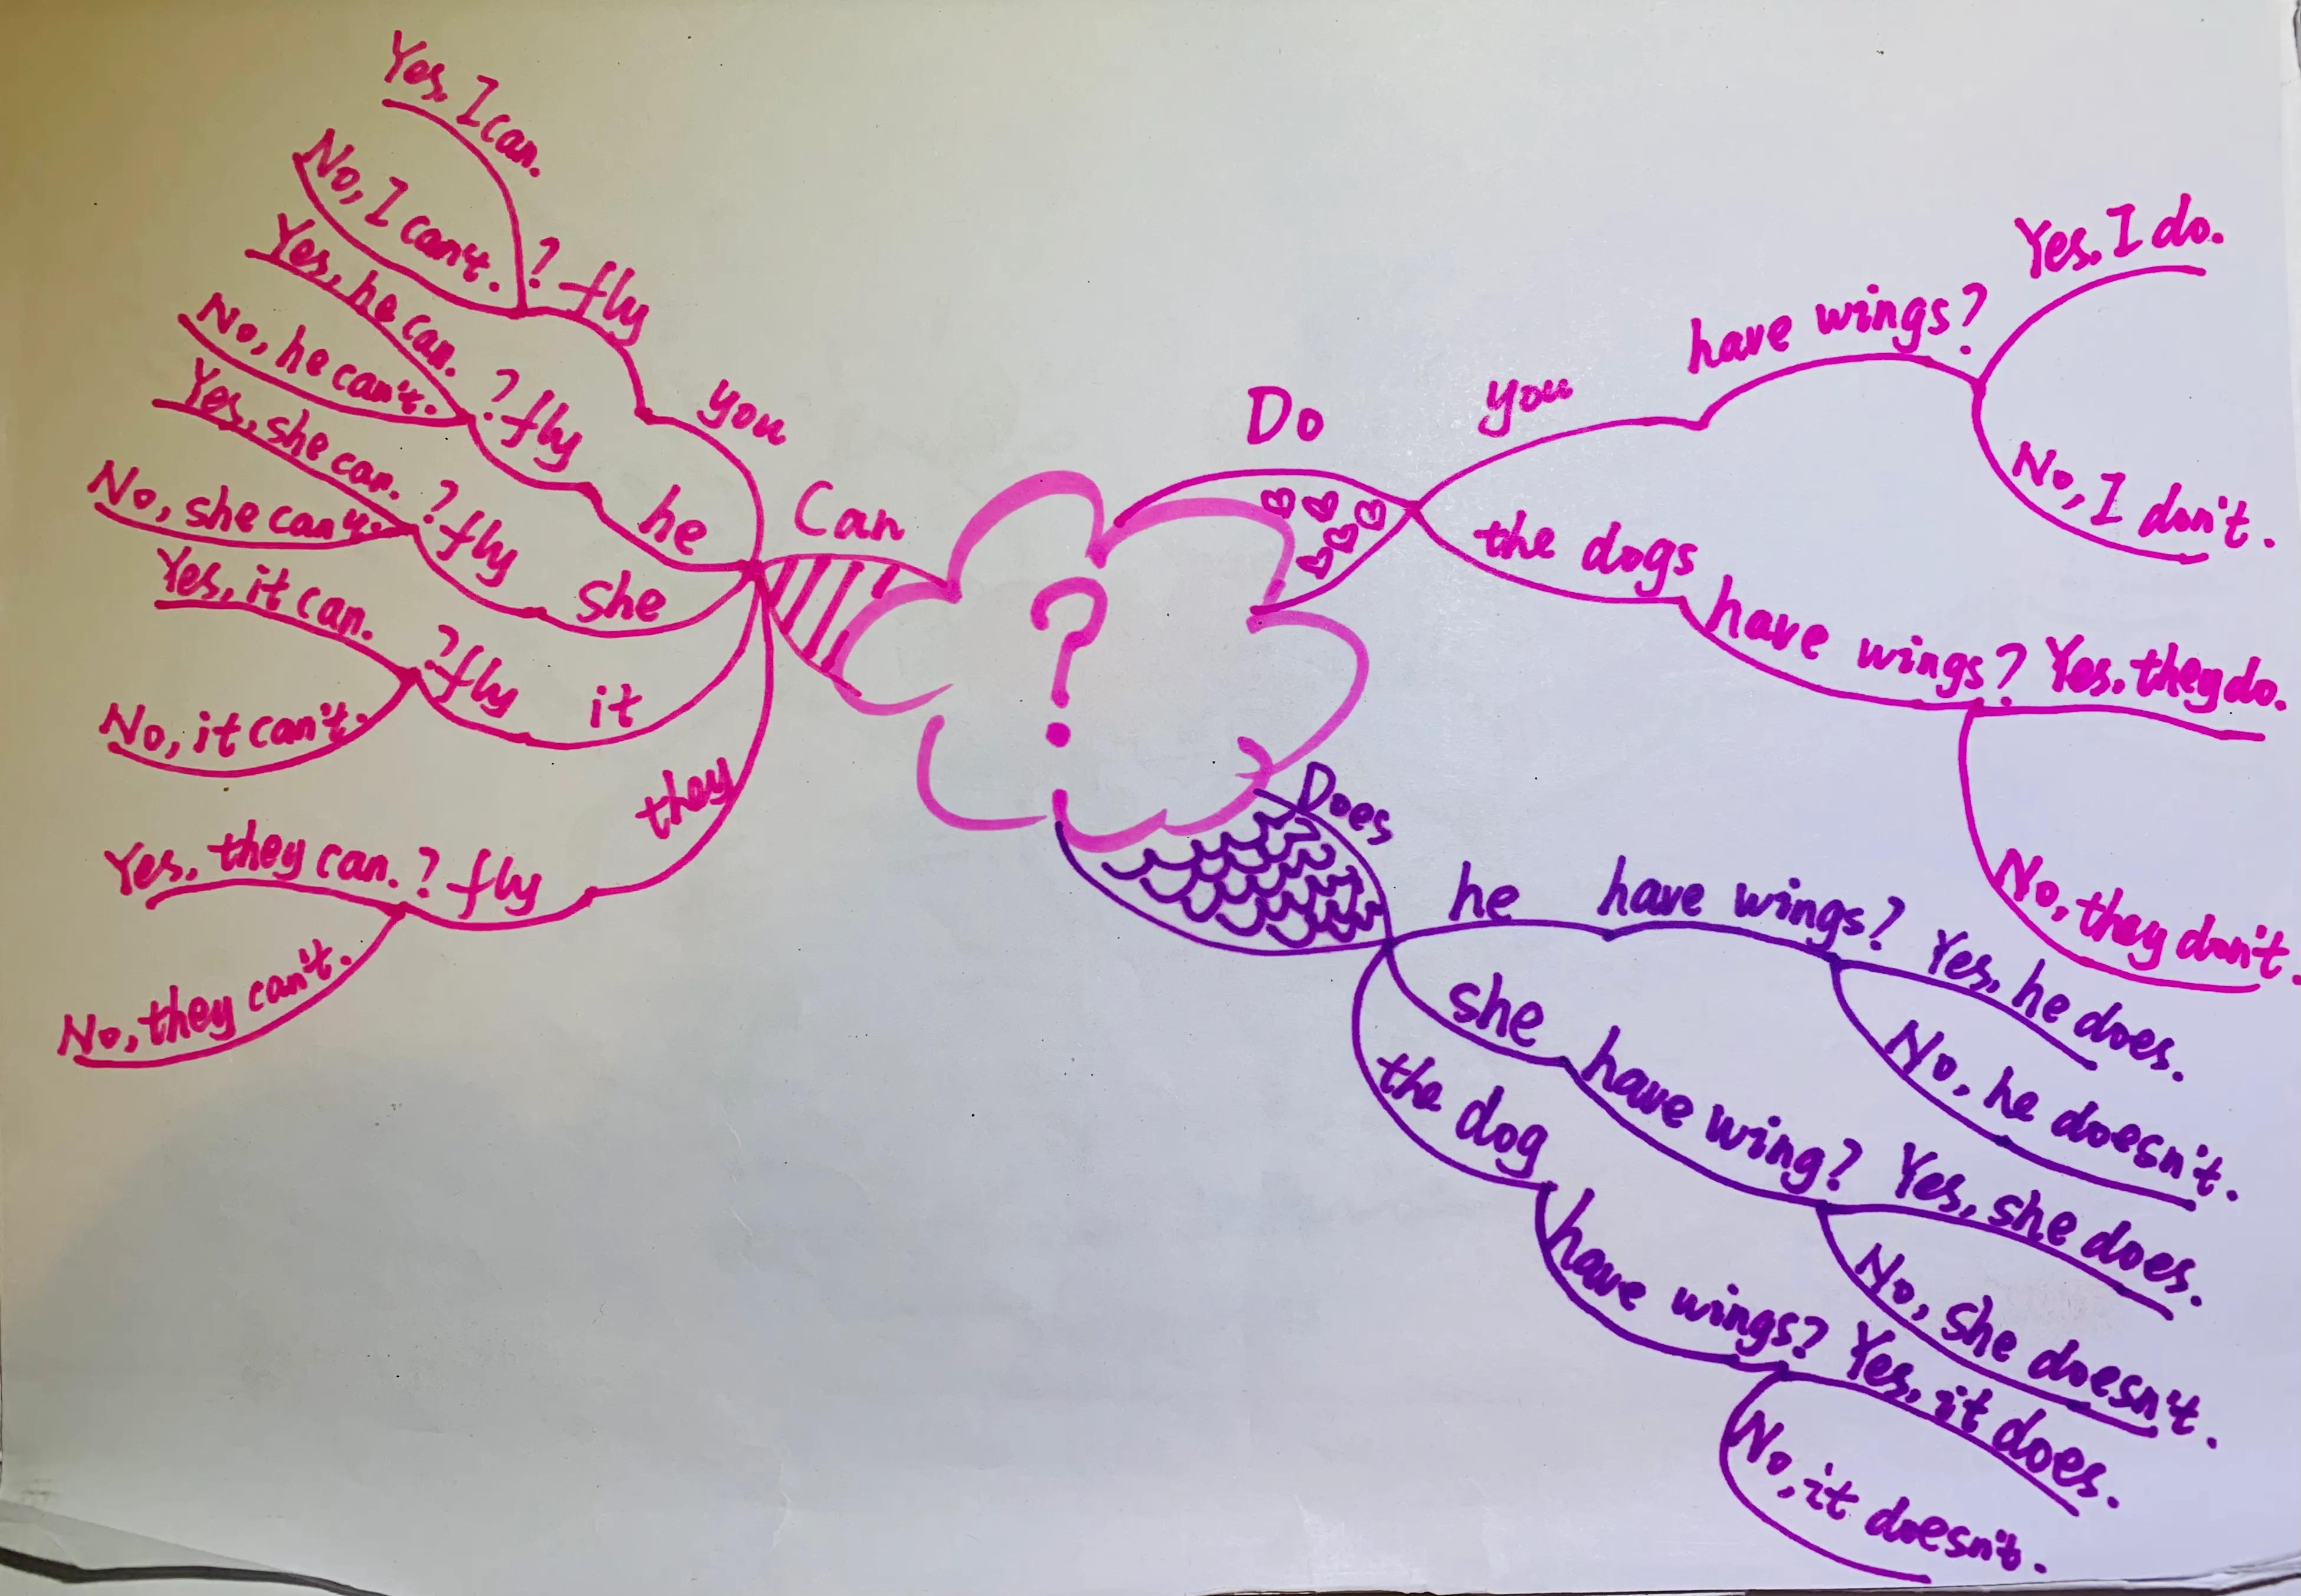 Yes, I can.
No, I can't.
? fly
you
Yes, he can.
No, he can't.
? fly
he
Yes, she can.
No, she can't.
? fly
she
Yes, it can.
No, it can't.
? fly
it
Yes, they can.
No, they can't.
? fly
they
Can
?
Do
you
have wings?
Yes, I do.
No, I don't.
the dogs
have wings?
Yes, they do.
No, they don't.
Does
he
have wings?
Yes, he does.
No, he doesn't.
she
have wing?
Yes, she does.
No, she doesn't.
the dog
have wings?
Yes, it does.
No, it doesn't.